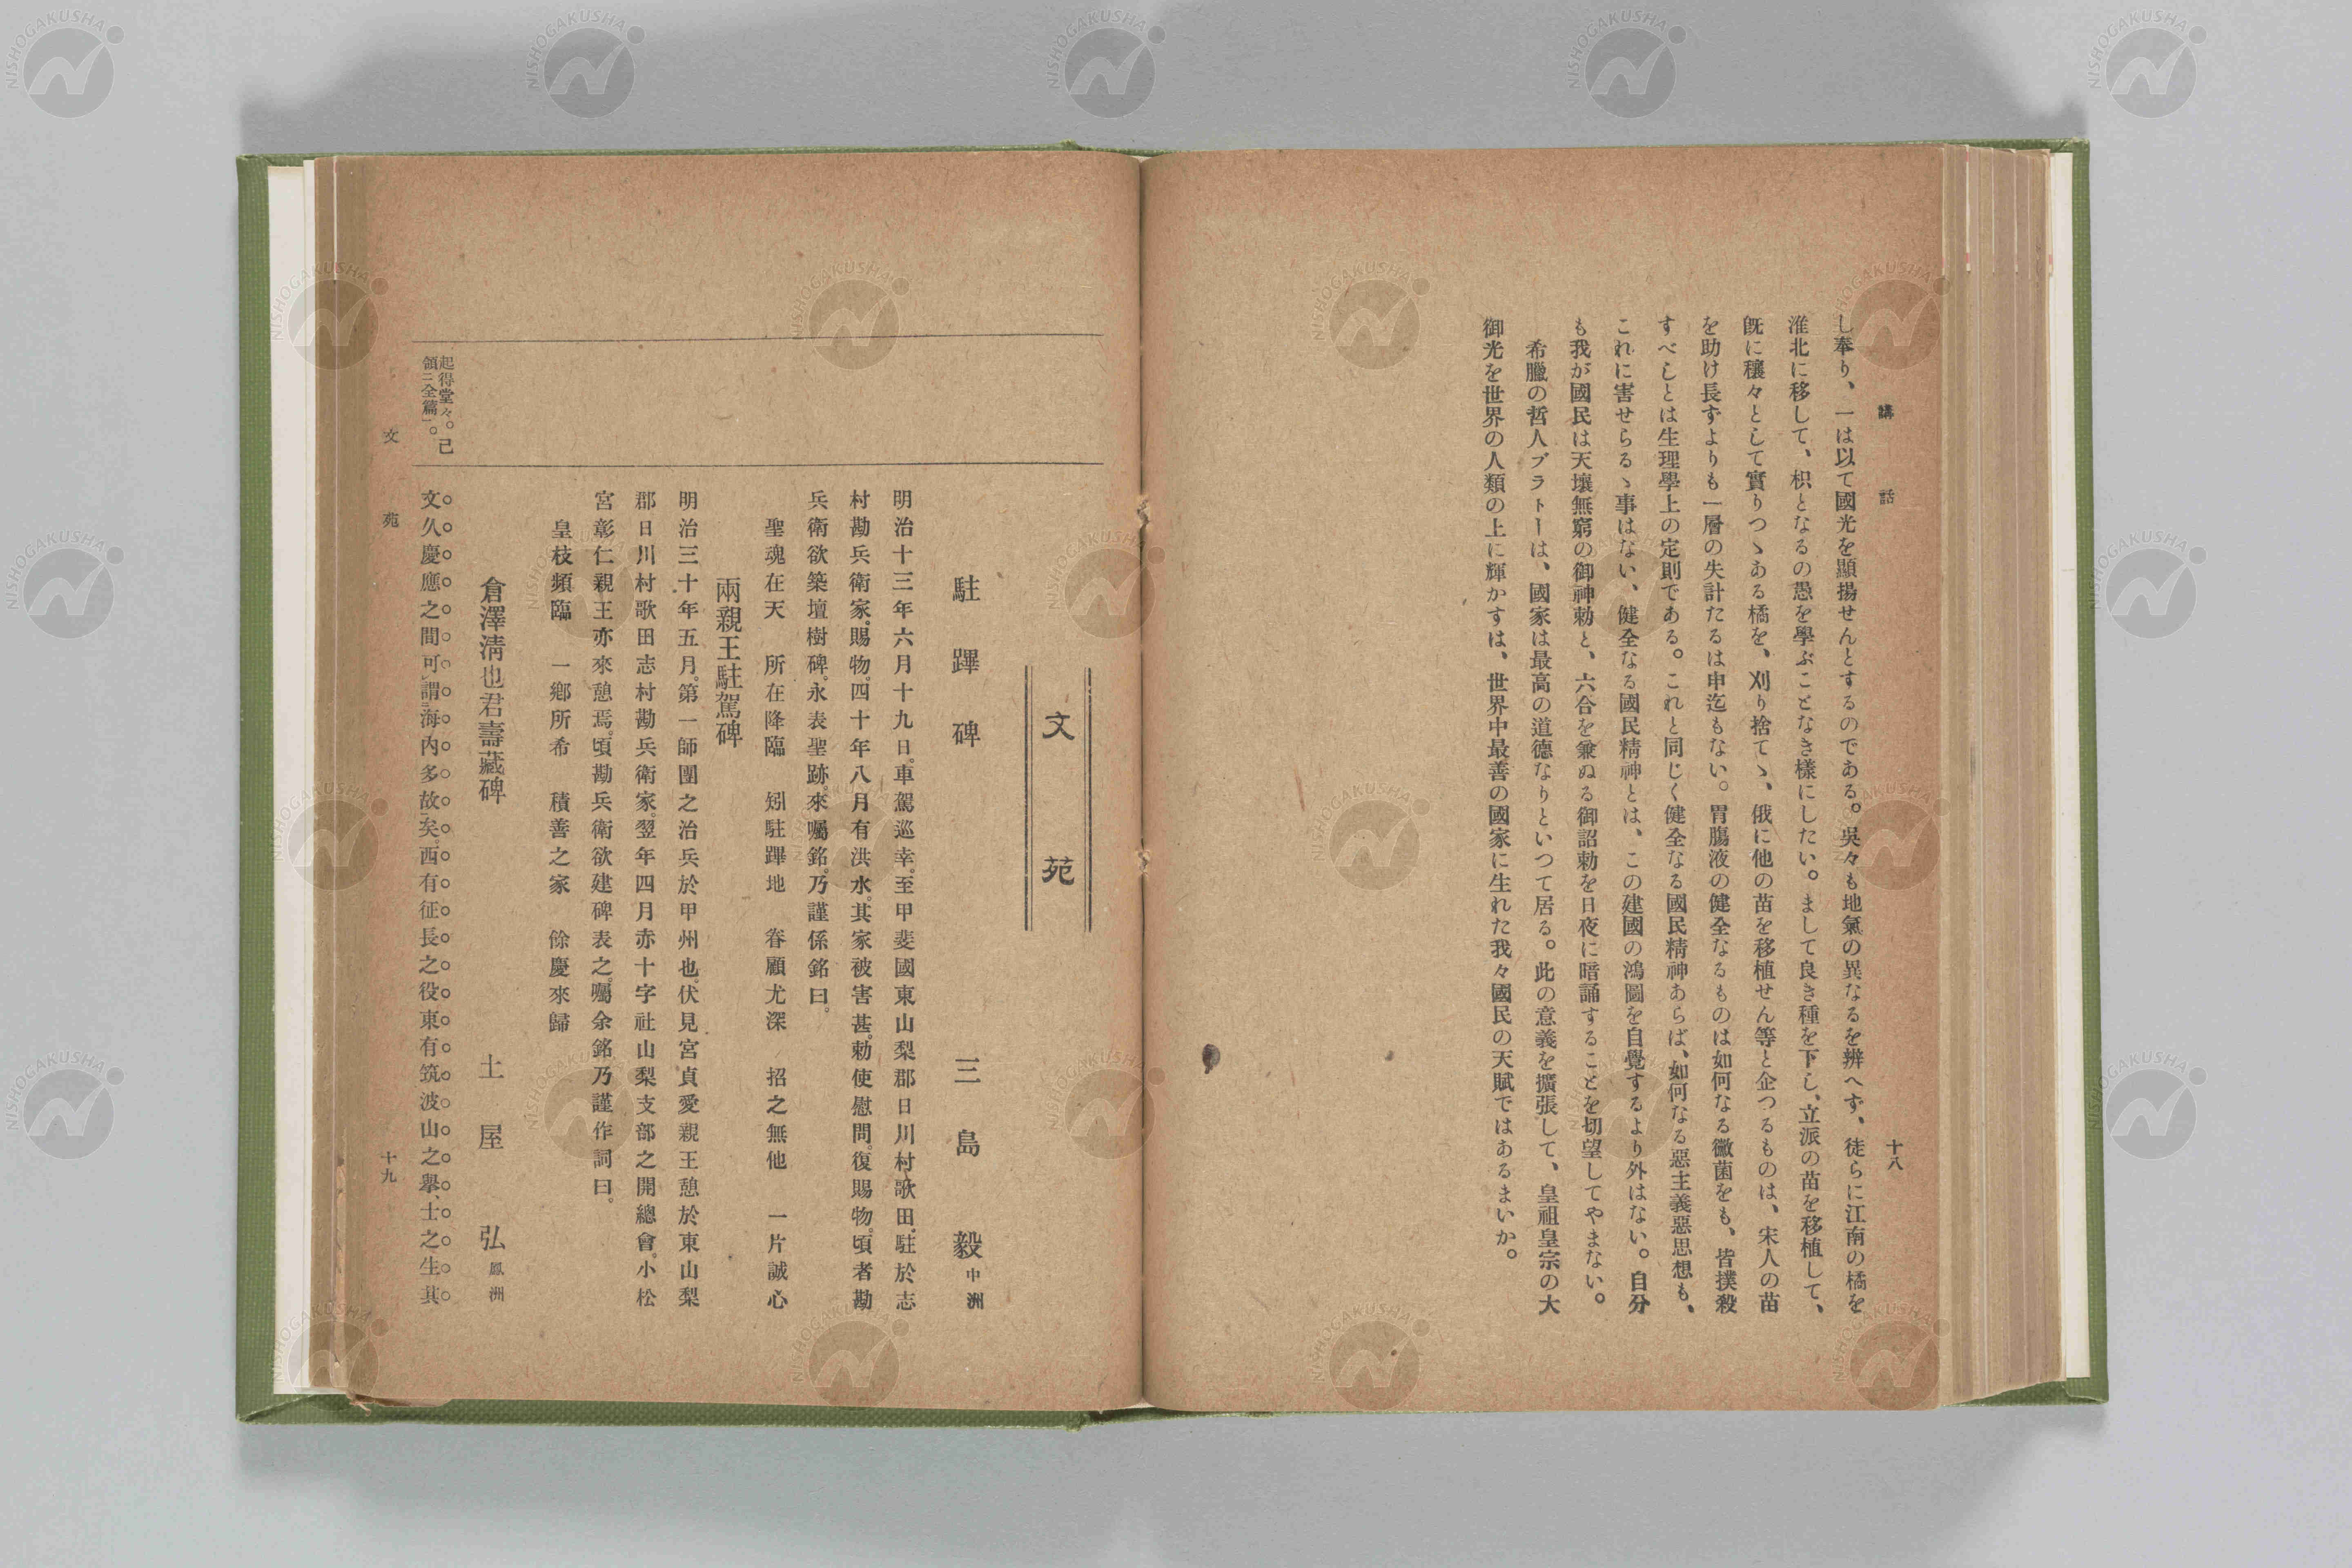 講話
十八
し奉り、一は以て國光を顯揚せんとするのである。吳々も地氣の異なるを辨へず、徒らに江南の橘を
淮北に移して、枳となるの愚を學ぶことなき樣にしたい。まして良き種を下し、立派の苗を移植して、
旣に穰々として實りつゝある橘を、刈り捨てゝ、俄に他の苗を移植せん等と企つるものは、宋人の苗
を助け長すよりも一層の失計たるは申迄もない。胃腸液の健全なるものは如何なる黴菌をも、皆撲殺
すべしとは生理學上の定則である。これと同じく健全なる國民精神あらば、如何なる惡主義惡思想も、
これに害せらるゝ事はない、健全なる國民精神とは、この建國の鴻圖を自覺するより外はない。自分
も我が國民は天壤無窮の御神勅と、六合を兼ぬる御詔勅を日夜に暗誦することを切望してやまない。
希臘の哲人プラトーは、國家は最高の道德なりといつて居る。此の意義を擴張して、皇祖皇宗の大
御光を世界の人類の上に輝かすは、世界中最善の國家に生れた我々國民の天賦ではあるまいか。
文苑
駐蹕碑 三島毅中洲
明治十三年六月十九日。車駕巡幸。至甲斐國東山梨郡日川村歌田。駐於志
村勘兵衞家。賜物。四十年八月有洪水。其家被害甚。勅使慰問。復賜物。頃者勘
兵衞欲築壇樹碑。永表聖跡。來囑銘。乃謹係銘曰。
聖魂在天 所在降臨 矧駐蹕地 眷顧尤深 招之無他 一片誠心
兩親王駐駕碑
明治三十年五月。第一師團之治兵於甲州也。伏見宮貞愛親王憩於東山梨
郡日川村歌田志村勘兵衞家。翌年四月赤十字社山梨支部之開總會。小松
宮彰仁親王亦來憩焉。頃勘兵衞欲建碑表之。囑余銘乃謹作詞曰。
皇枝頻臨 一鄕所希 積善之家 餘慶來歸
倉澤淸也君壽藏碑 土屋弘鳳洲
文久慶應之間可謂海內多故矣。西有征長之役東有筑波山之擧、士之生其
起得堂々。已
領全篇。
文苑
十九
NISHOGAKUSHA